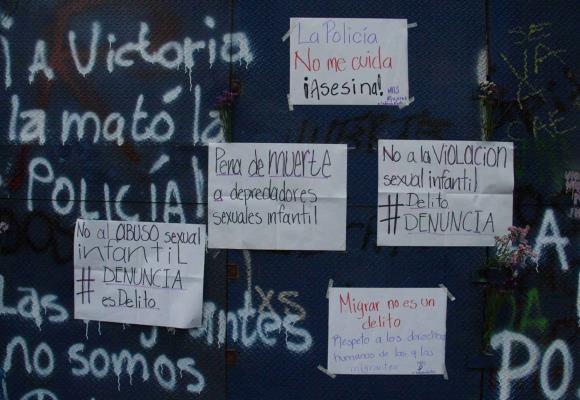 ¡A Victoria
la mató la
Policía!
Las migrantes
no somos
La Policía
No me cuida
¡Asesina!
Pena de muerte
a depredadores
sexuales infantil
No a la VIOLACION
sexual infantil
#Delito
DENUNCIA
No al ABUSO sexual
infantil
# DENUNCIA
es Delito
Migrar no es un
delito
Respeto a los derechos
humanos de las y los
migrantes
A
PO